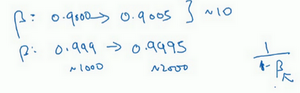 β: 0.9000 → 0.9005 } ~10
β: 0.999 → 0.9995
~1000 ~2000
1/(1-β)